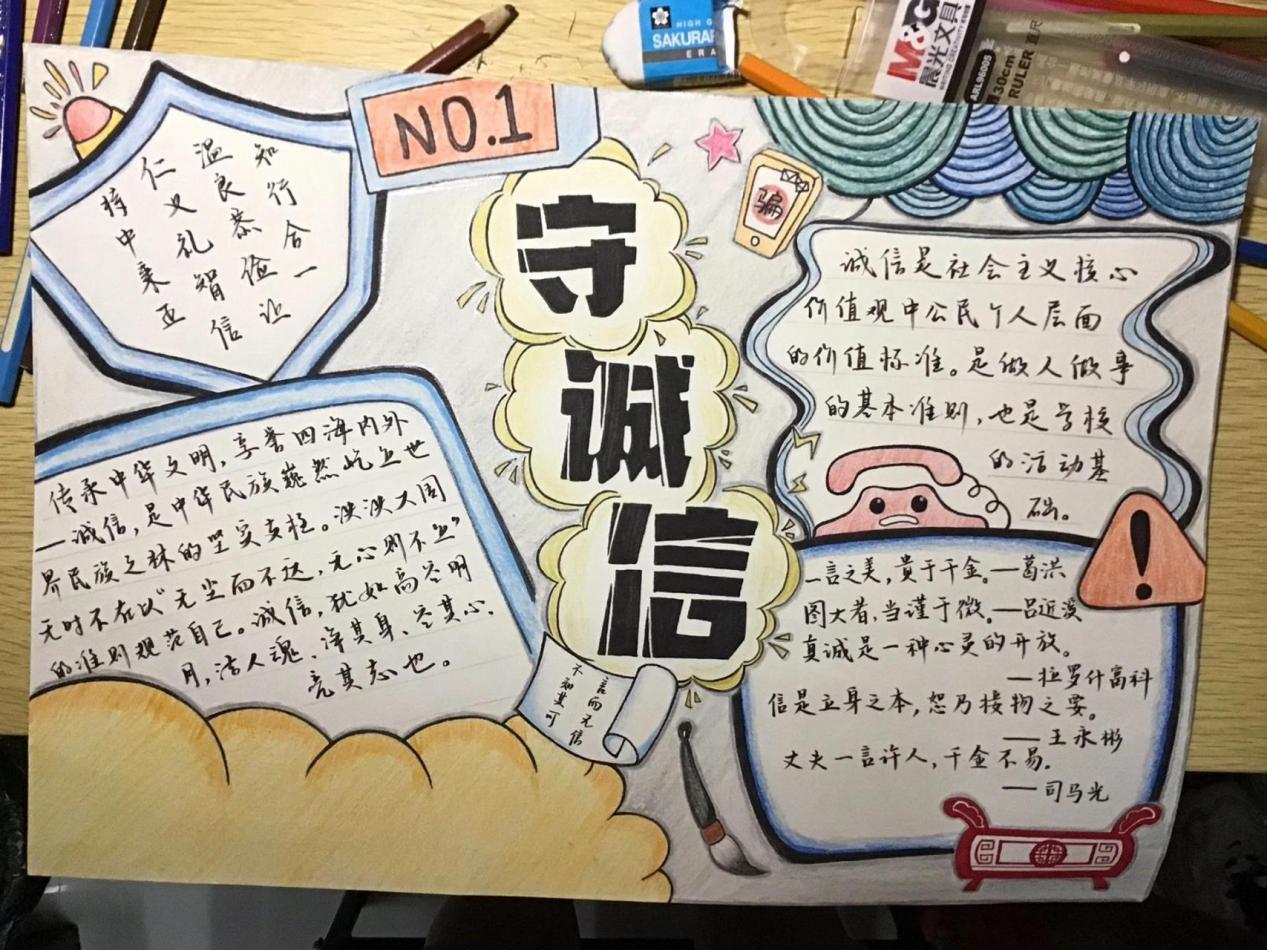 HIGH G
SAKURA
ERA
M&G
晨光文具
30cm
RULER 直尺
NO.1
知行合一
温良恭俭让
仁义礼智信
持中秉正
守
诚
信
骗
诚信是社会主义核心
价值观中公民个人层面
的价值标准。是做人做事
的基本准则，也是考核
的活动基
础。
传承中华文明，享誉四海内外
—诚信，是中华民族巍然屹立世
界民族之林的坚实支柱。泱泱大国
无时不在以“无尘而不达，无心则不立”
的准则规范自己。诚信，犹如高空明
月，洁人魂、净其身、空其心、
亮其志也。
言而无信
不知其可
!
一言之美，貴于千金。—葛洪
图大者，当谨于微。—吕近溪
真诚是一种心灵的开放。
—拉罗什富科
信是立身之本，恕乃接物之要。
—王永彬
丈夫一言许人，千金不易。
—司马光